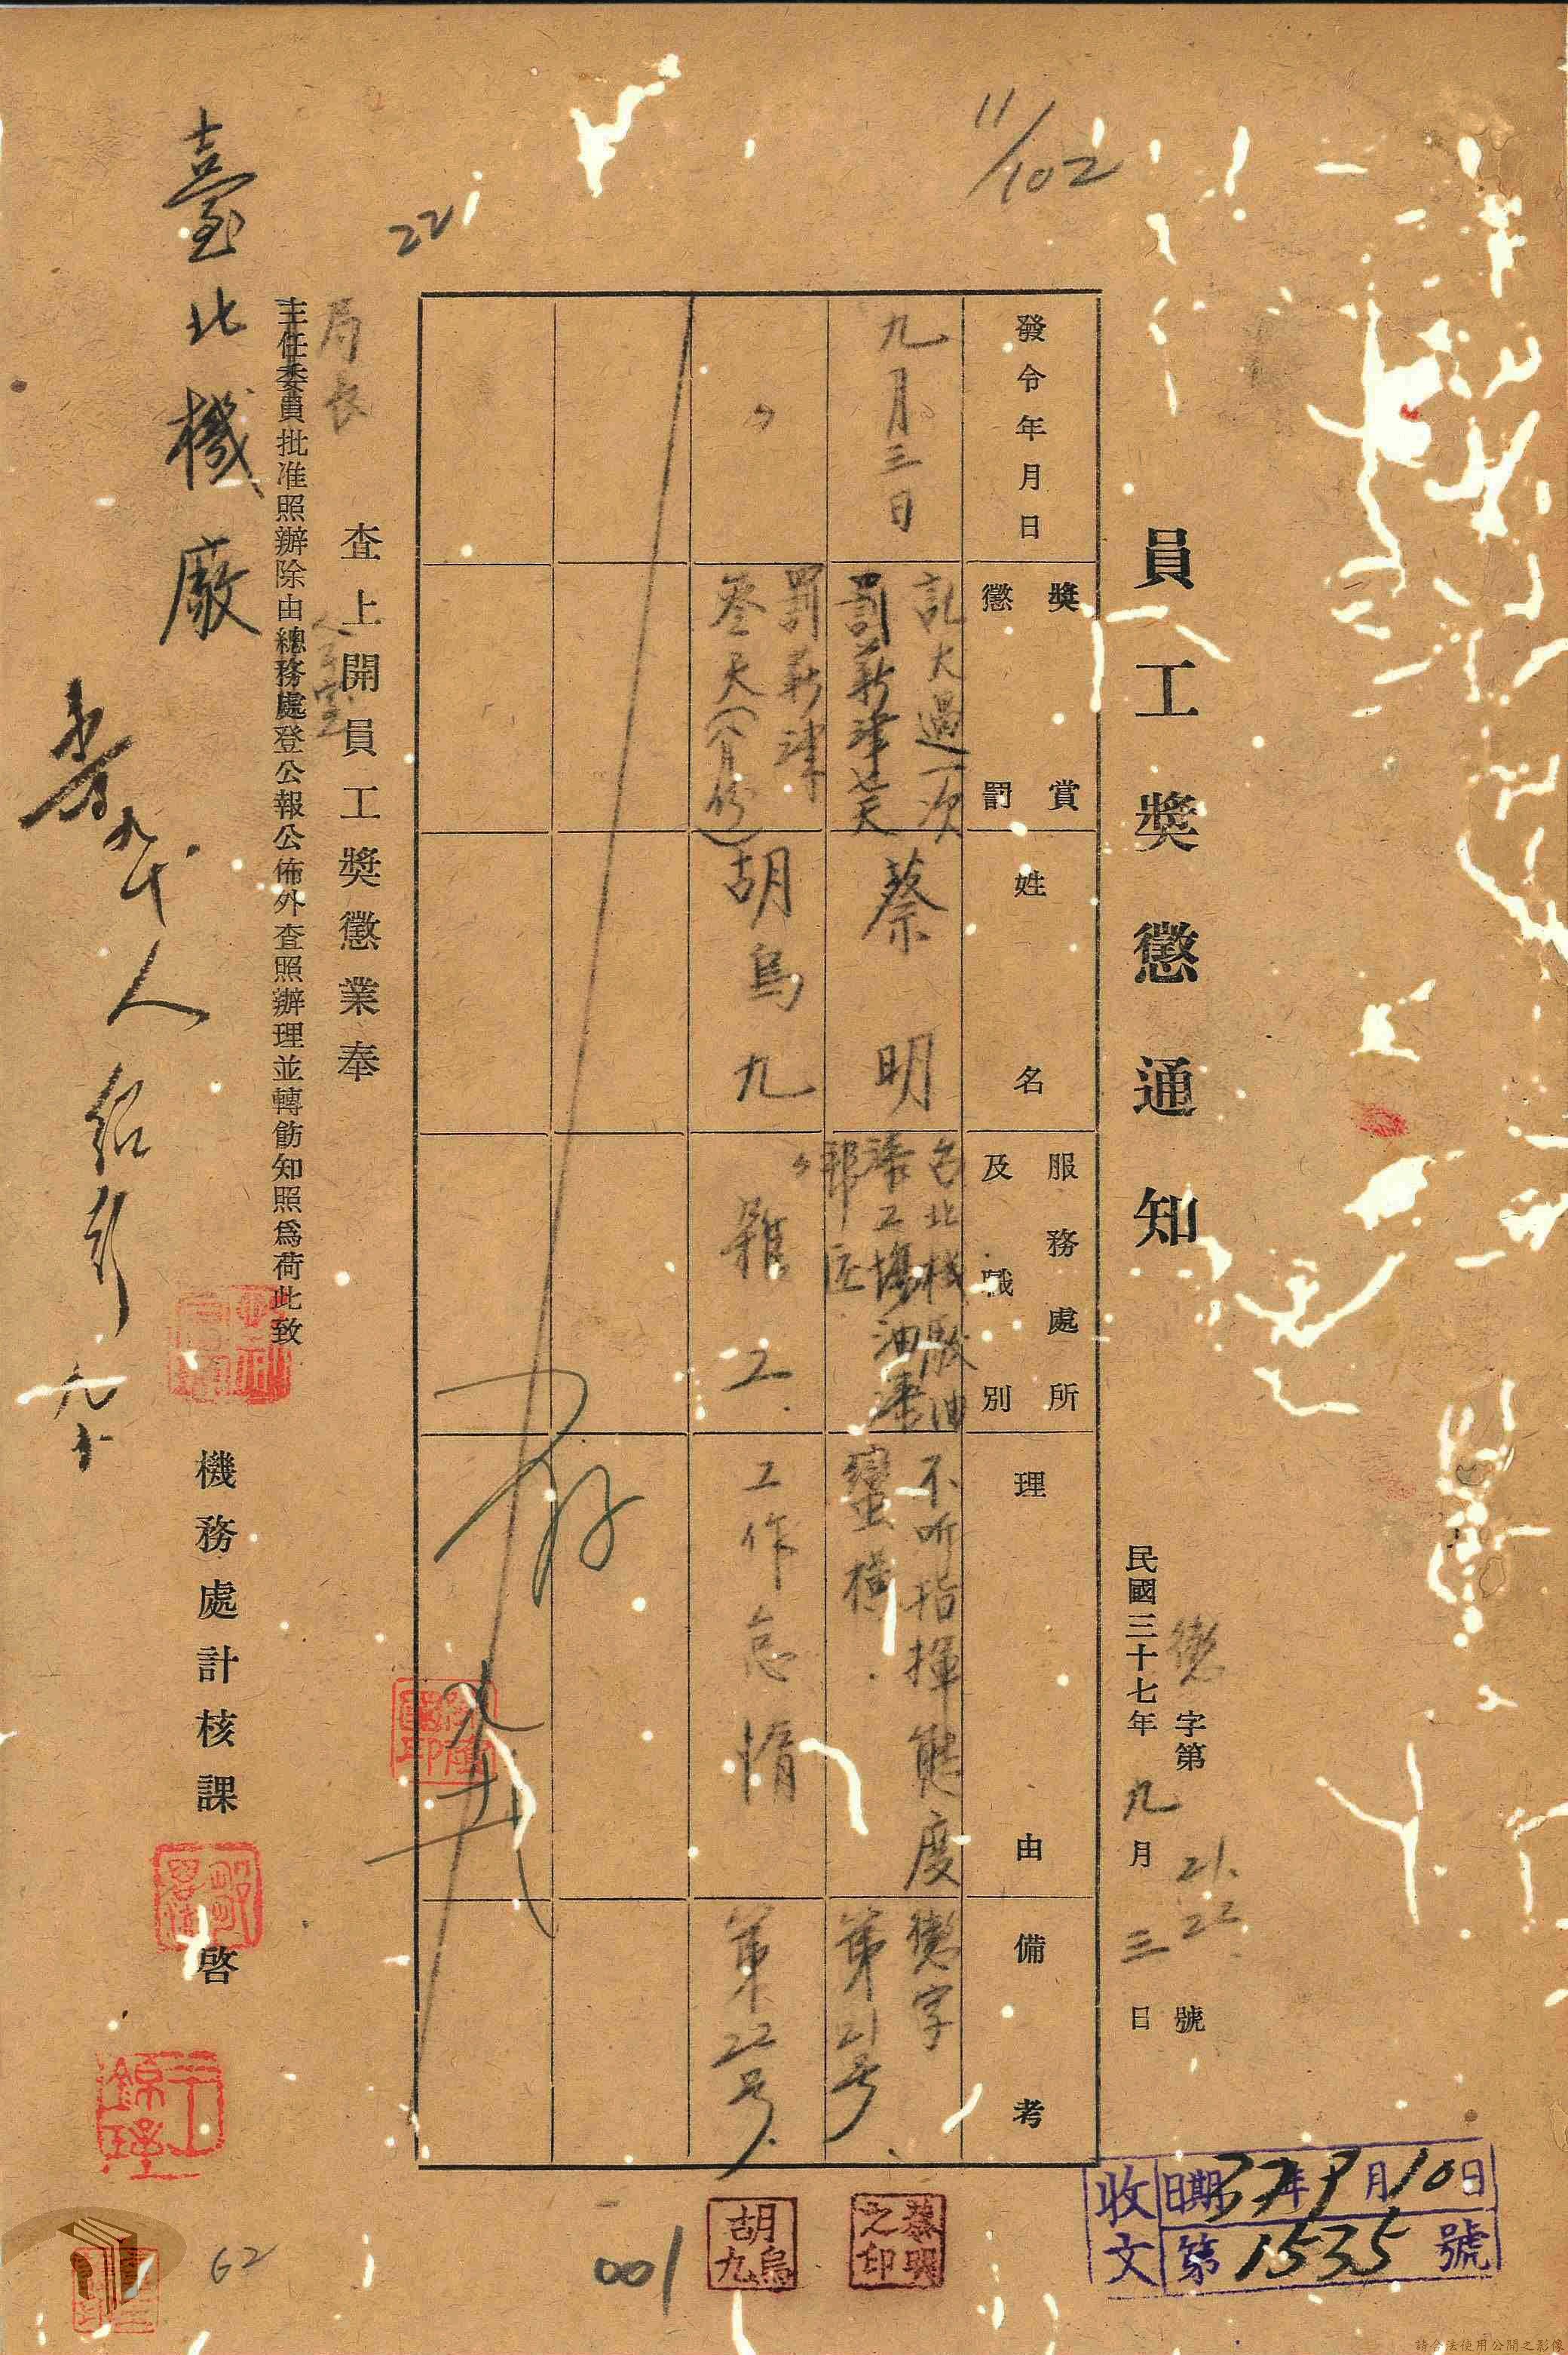 11/102
員工獎懲通知
懲字第21.22.號
民國三十七年九月三日
收文
日期37年9月10日
第1535號
發令年月日
獎賞
懲罰
姓名
服務處所
及職別
理由
備考
九月三日
記大過一次
罰薪津
蔡明
台北機廠油
漆工場油漆
不听指揮態度
蠻橫
懲字
第21号
蔡明之印
〃
罰薪津
叁天(八月份)
胡烏九
〃
雜工
工作怠惰
第22号
胡烏九
001
22
查上開員工獎懲業奉
局長
主任委員批准照辦除由總務處登公報公佈外查照辦理並轉飭知照為荷此致
人事室
臺北機廠
機務處計核課
啓
王錦瑾
九
62
請合法使用公開之影像